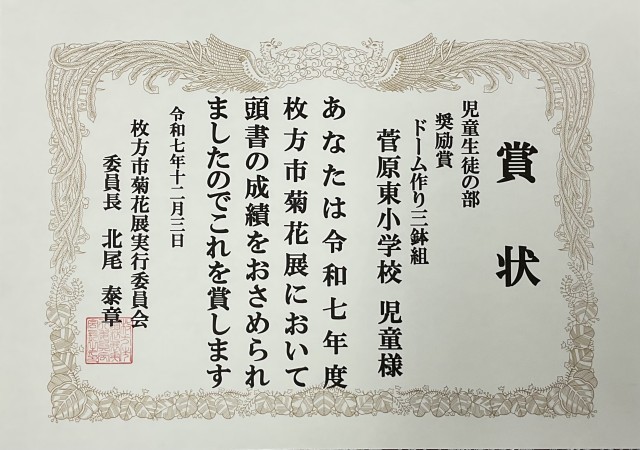 賞状
児童生徒の部
奨励賞
ドーム作り三鉢組
菅原東小学校 児童様
あなたは令和七年度
枚方市菊花展において
頭書の成績をおさめられ
ましたのでこれを賞します
令和七年十二月三日
枚方市菊花展実行委員会
委員長 北尾 泰章